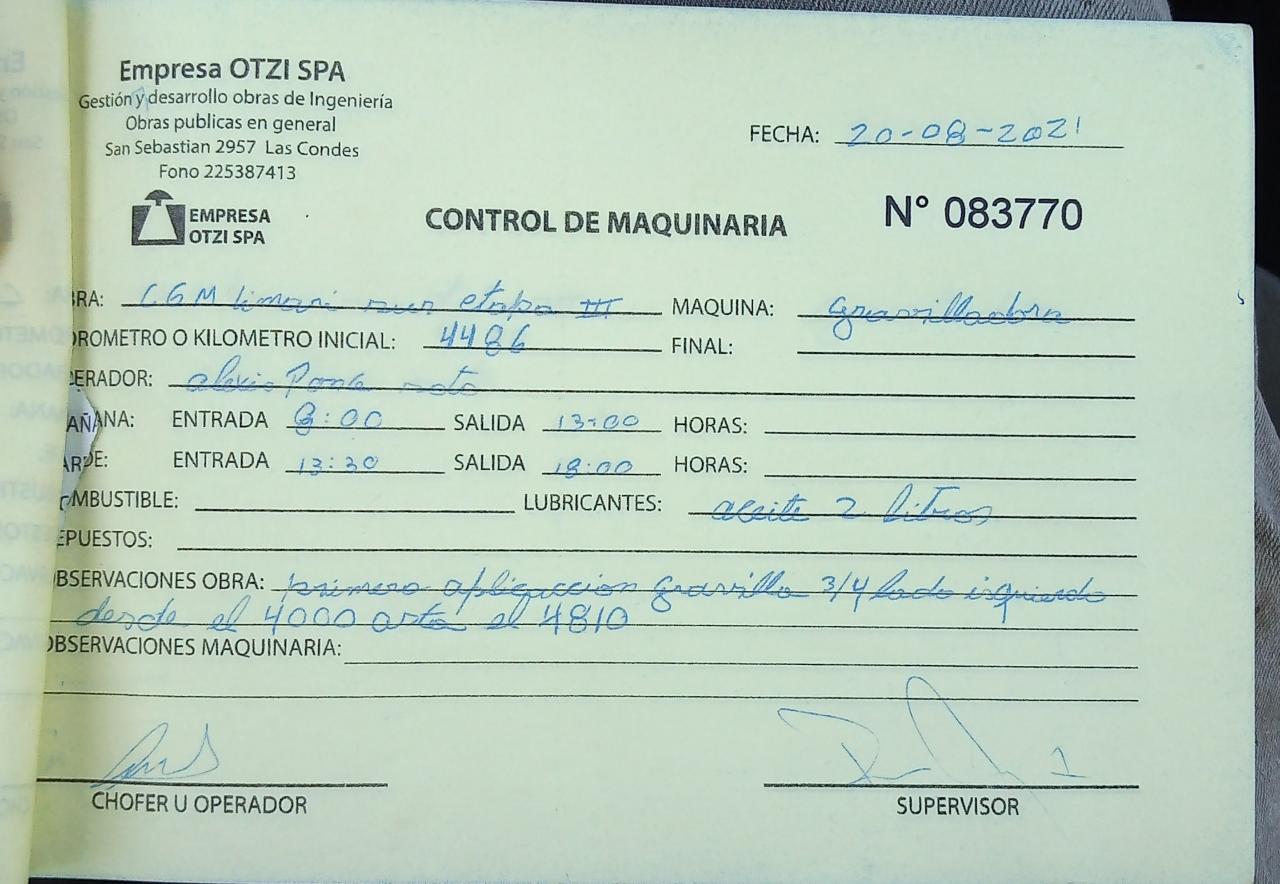 Empresa OTZI SPA
Gestión y desarrollo obras de Ingeniería
Obras publicas en general
San Sebastian 2957 Las Condes
Fono 225387413
FECHA: 20-08-2021
EMPRESA
OTZI SPA
CONTROL DE MAQUINARIA
N° 083770
BRA: CGM limari sur etapa III MAQUINA: gravilladora
OROMETRO O KILOMETRO INICIAL: 4486 FINAL:
ERADOR: alexis Ponce soto
AÑANA: ENTRADA 8:00 SALIDA 13:00 HORAS:
ARDE: ENTRADA 13:30 SALIDA 18:00 HORAS:
OMBUSTIBLE: LUBRICANTES: aceite 2 litros
EPUESTOS:
BSERVACIONES OBRA: primera apliquccion gravilla 3/4 lado isquierdo
desde el 4000 asta el 4810
OBSERVACIONES MAQUINARIA:
CHOFER U OPERADOR SUPERVISOR